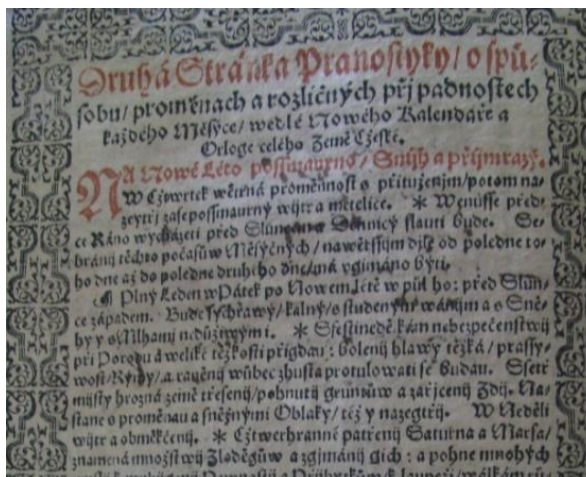 Druhá Stránka Pranostyky / o spů-
sobu / proměnach a rozličných přjpadnostech
každého Měsýce / wedlé Nowého Kalendaře a
Orloge celého Země Cžeské.
NA Nowé Léto possmaurno / Snijh a přjmrazý.
W Cžtwrtek wětrná proměnnost s přituženjm / potom na-
zeytřj zase possmaurný wjtr a metelice. * Wenusse před
Rano wycházeti před Sluncem a Dennicý slauti bude. Se-
bránij těchto počasůw Měsýčných / nawětssým djle od poledne to-
ho dne až do poledne druhého dne / má vgimáno býti.
¶ Plný Leden w Pátek po Nowem Létě w půl ho: před Slun-
ce západem. Bude sychrawý / kalný / s studeným wánjm a s Sně-
hy y s Mlhami nedůžiwými. * Ssestinedělkám nebezpečenstwij
při Porodu a weliké těžkosti přigdau: bolenij hlawy těžká / prassy-
wost / Rýmy / a
mjsty hrozná země třesenij / pohnutij gruntůw a zařjcenij Zdij. Na-
stane s proměnau a sněžnými Oblaky / též y nazegtřij. W Neděli
wjtr a obměkčenij. * Cžtwerhranné patřenij Saturna a Marsa /
znamená množstwij Zloděgůw a zgjmánij gich: a pohne mnohých